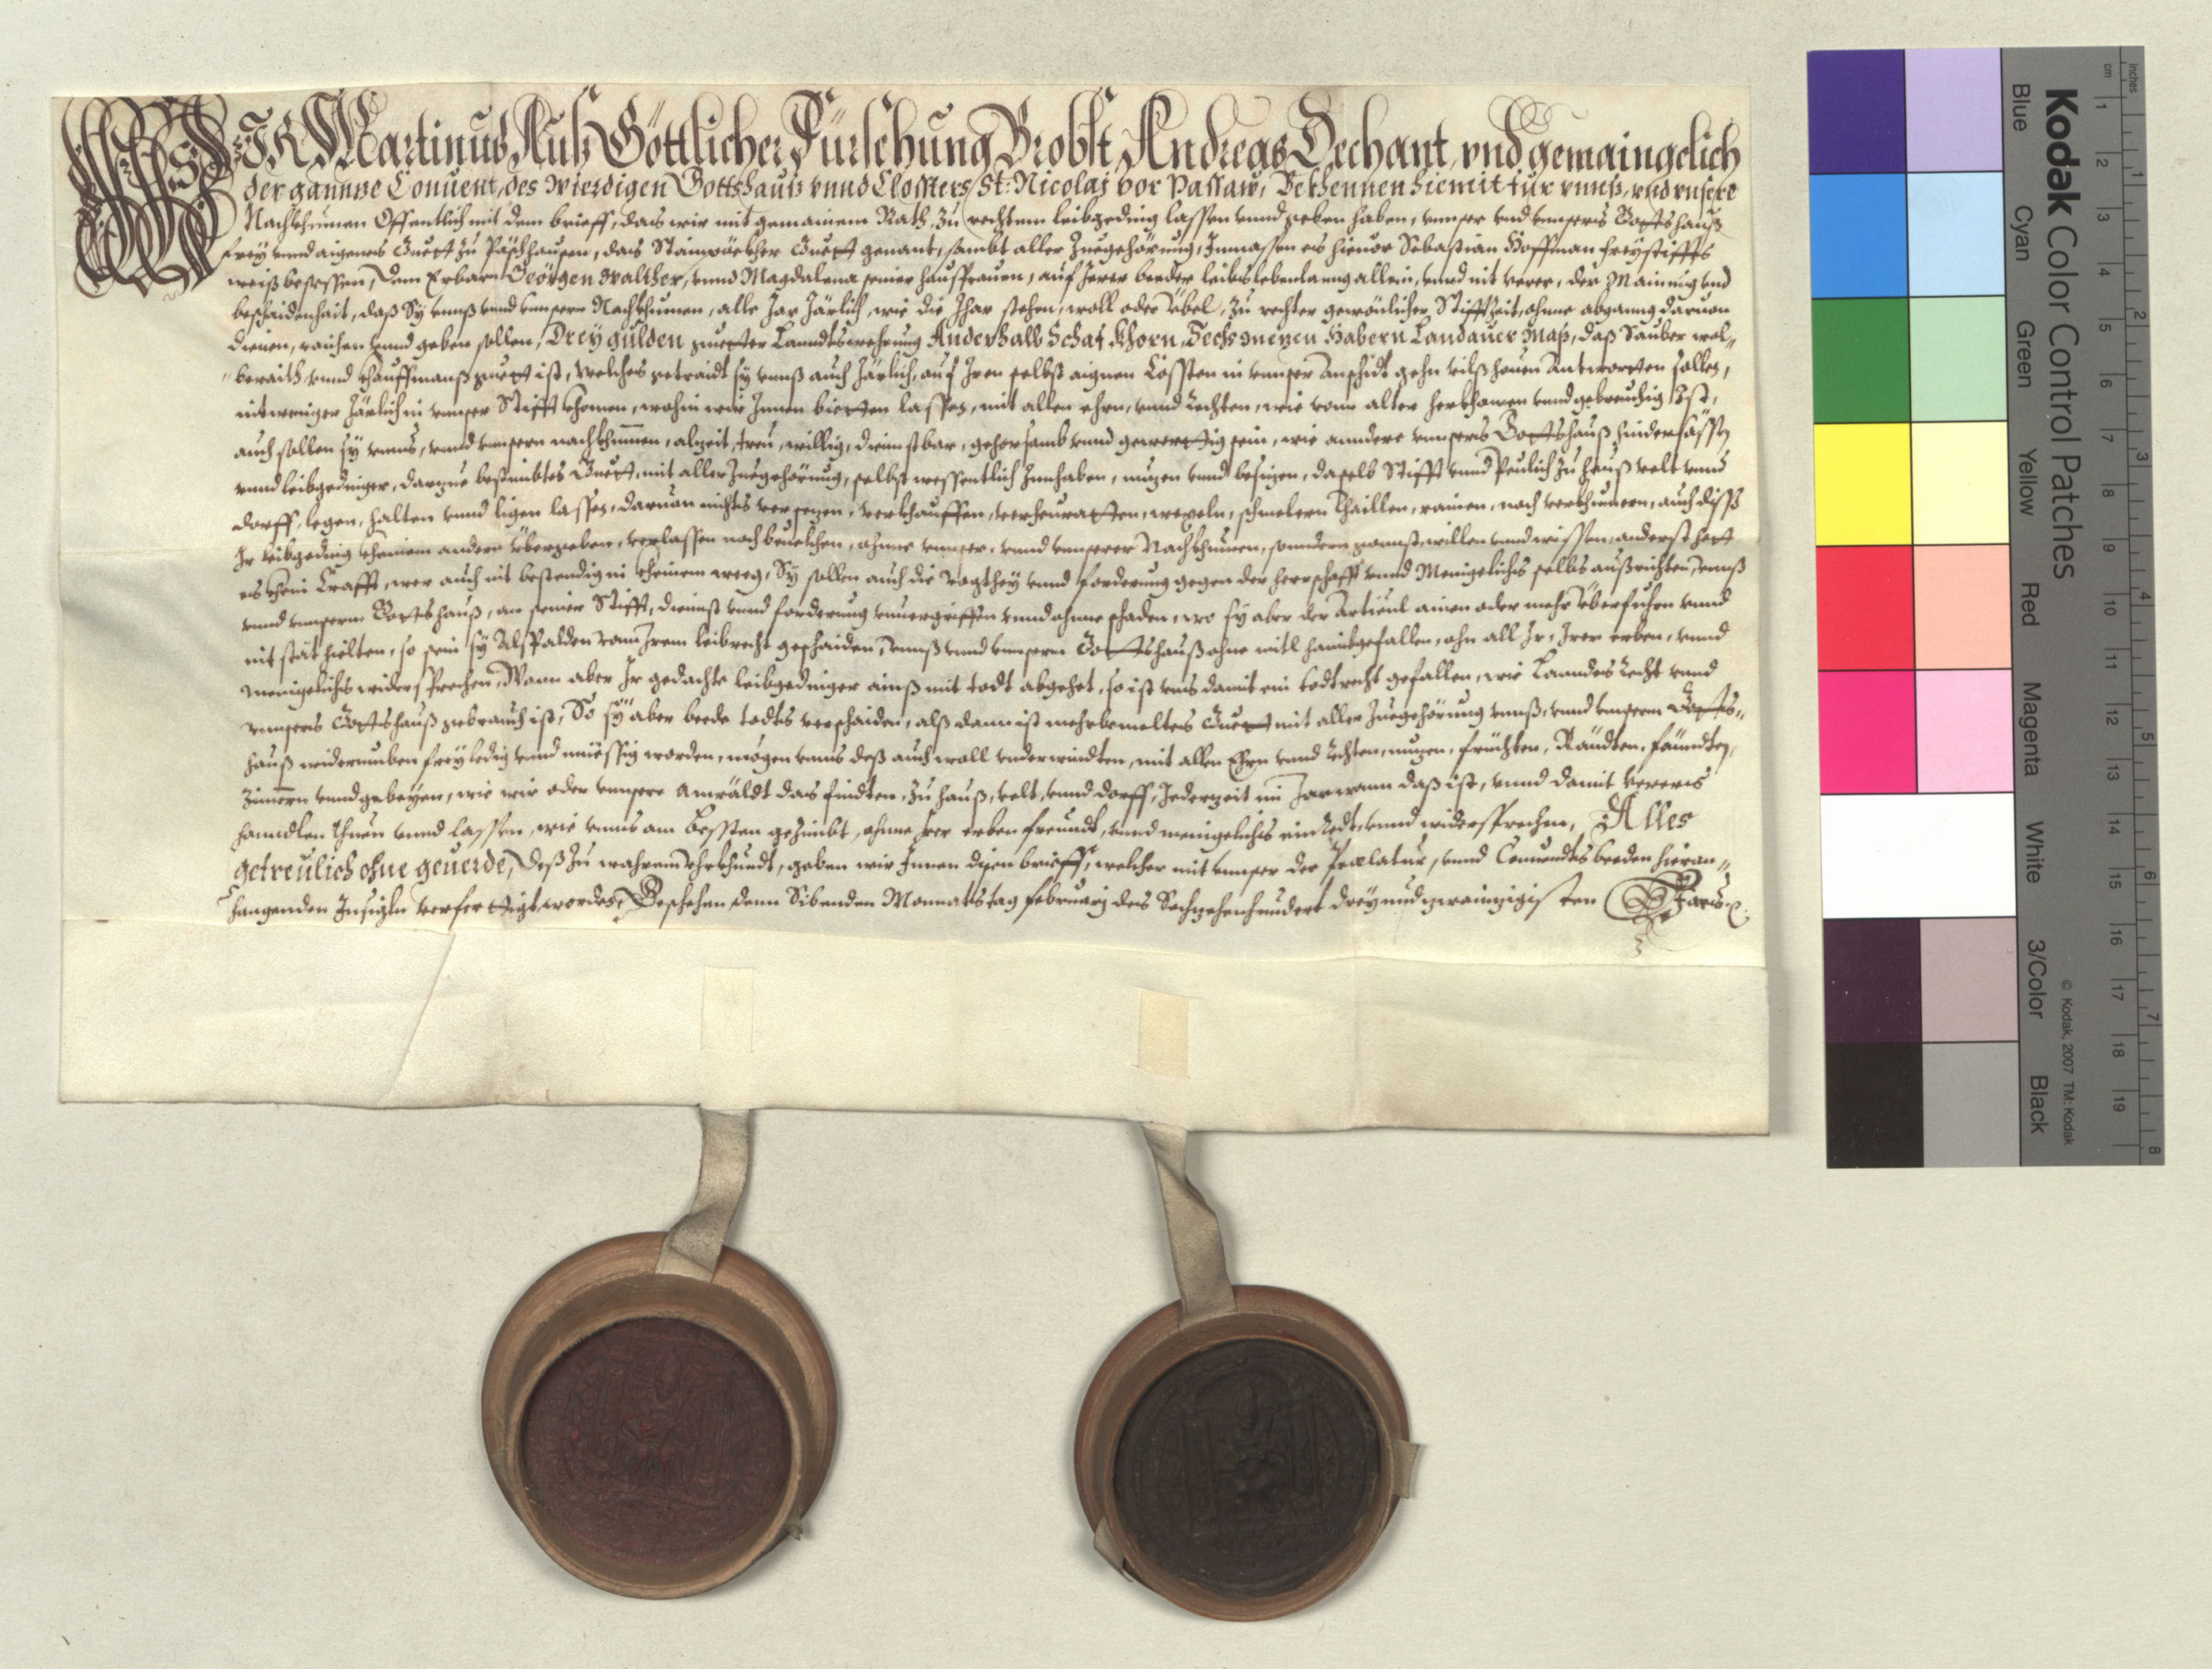 WIR Martinus Auß Göttlicher Fürsehung Brobst Andreas Dechant, vnd gemaingelich
der gannze Conuent, des wierdigen Gottshauß vnnd Closters St: Nicolai vor Passaw, Bekhennen hiemit für vnnß, vnd vnsere
Nachkhumen Offentlich mit dem brieff, das wir mit gemainem Rath, zu rechtem leibgeding lassen vnnd geben haben, vnnser vnd vnnsers Gottshauß
frey vnnd aigenes Guett zu Päschhausen, das Stainpäckher Guett genant, sambt aller Zuegehörung, Inmassen es hieuor Sebastian Hoffman freystiffts
weiß besessen, dem Erbarn Geörgen Walther, vnnd Magdalena seiner haussfrauen, auf Irer beeder leibslebenlanng allein, vnnd nit verer, der Mainung vnd
beschaidenhait, daß Sy vnnß vnnd vnnsern Nachkhumen, alle Jar Järlich, wie die Jhar stehen, woll oder übel, zu rechter gewönlicher Stifftzeit, ohne abganng daruon
dienen, raichen vnnd geben sollen, Drey gulden guetter Lanndtswehrung Anderhalb Schaf Khorn, Sechs mezen Habern Landauer Maß, daß Sauber wol„
„beraith vnnd khauffmanß guett ist, welches getraidt sy vnnß auch Järlich, auf Iren selbst aignen Cossten in vnnser Anschidt gehn Vilßhouen Antwortten sollen,
nit weniger Järlich in vnnser Stifft khomen, wohin wir Innen bietten lassen, mit allen ehrn, vnnd Rechten, wie vonn alter herkhomen vnnd gebreuchig Ist,
auch sollen sy vnns, vnnd vnnsern nachkhummen, alzeit, treu, willig, dienstbar, gehorsamb vnnd gewerttig sein, wie anndere vnnsers Gottshauß hindersässn
vnnd leibgedinger, darzue bestimbtes Guett, mit aller Zuegehörung, selbst wessentlich Innhaben, nuzen vnnd besizen, daselb Stifft vnnd Peulich zu hauß velt vnnd
dorff, legen, halten vnnd ligen lassen, daruon nichts versezen, verkhauffen, verheuratten, wexeln, schmelern thaillen, rainen, noch verkhumern, auch diss
Ir leibgeding kheinem andern übergeben, verlassen noch beuelchen, ohnne vnnser, vnnd vnnserer Nachkhumen, sonndern gonnst, willen vnnd wissen, anderst hett
es khein Crafft, wer auch nit bestendig in kheinem weeg, Sy sollen auch die Vogthey vnnd forderung gegen der herrschafft vnnd Meniglichs selbs außrichten, vnnß
vnnd vnnserm Gottshauß, an seiner Stifft, diennst vnnd forderung vnuergriffen vnnd ohnne schaden, wo sy aber der Articul ainen oder mehr überfuhrn vnnd
nit stät hielten, so sein sy Als Palden vonn Irem leibrecht geschaiden, vnnß vnnd vnnserm Gottshauß ohne mitl haimbgefallen, ohn all Ir, Irer erben, vnnd
meniglichs widersprechen, Wann aber Ir gedachte leibgedinger ainß mit todt abgehet, so ist vns damit ein todtrecht gefallen, wie Lanndes Recht vnnd
vnnsers Gottshauß gebrauch ist, So sy aber beede todts verschaiden, alß dann ist mehrbemeltes Guett mit aller Zuegehörung vnnß, vnnd vnnserm Gotts„
hauß widerumben frey ledig vnnd müessig worden, mögen vnns deß auch woll vnderwindten, mit allen Ehrn vnnd Rechten, nuzen, früchten, Räudten, fäundten,
Zimern vnnd gebeyen, wie wir oder vnnsere Anwäldt das findten, zu hauß, velt, vnnd dorff, Jederzeit im Jar wann daß ist, vnnd damit verers
hanndlen thuen vnnd lassen, wie vnns am Bessten gezimbt, ohnne Irer erben freundt, vnnd meniglichs einredt vnnd widersprechen, Alles
getreulich ohne geuerde, Deß zu wahrem Vhrkhundt, geben wir Innen disen brieff, welcher mit vnnser der Prælatur, vnnd Conuendts beeden hieran„
hangenden Insigln verferttigt worden, Beschehen denn Sibenden Monnatstag februarij des Sechzehenhundert dreyundzwainzigisten Jars.
Kodak Color Control Patches
© Kodak, 2007 TM: Kodak
Blue Cyan Green Yellow Red Magenta White 3/Color Black
inches 1 2 3 4 5 6 7 8
cm 1 2 3 4 5 6 7 8 9 10 11 12 13 14 15 16 17 18 19